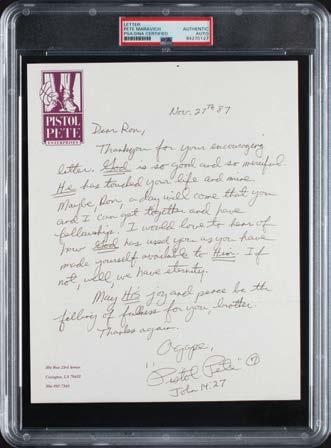 LETTER
PETE MARAVICH
PSA/DNA CERTIFIED
AUTHENTIC
AUTO
84270127
PISTOL
PETE
ENTERPRISES
Nov. 27th 87
Dear Ron,
Thankyou for your encouraging
letter. God is so good and so merciful.
He has touched your life and mine.
Maybe Ron, a day will come that you
and I can get together and have
fellowship. I would love to hear of
how God has used you as you have
made yourself available to Him. If
not, well, we have eternity.
May His joy and peace be the
felling of fullness for you, brother.
Thanks again.
Agape,
"Pistol Pete"
John 14:27
Covington, LA 70433